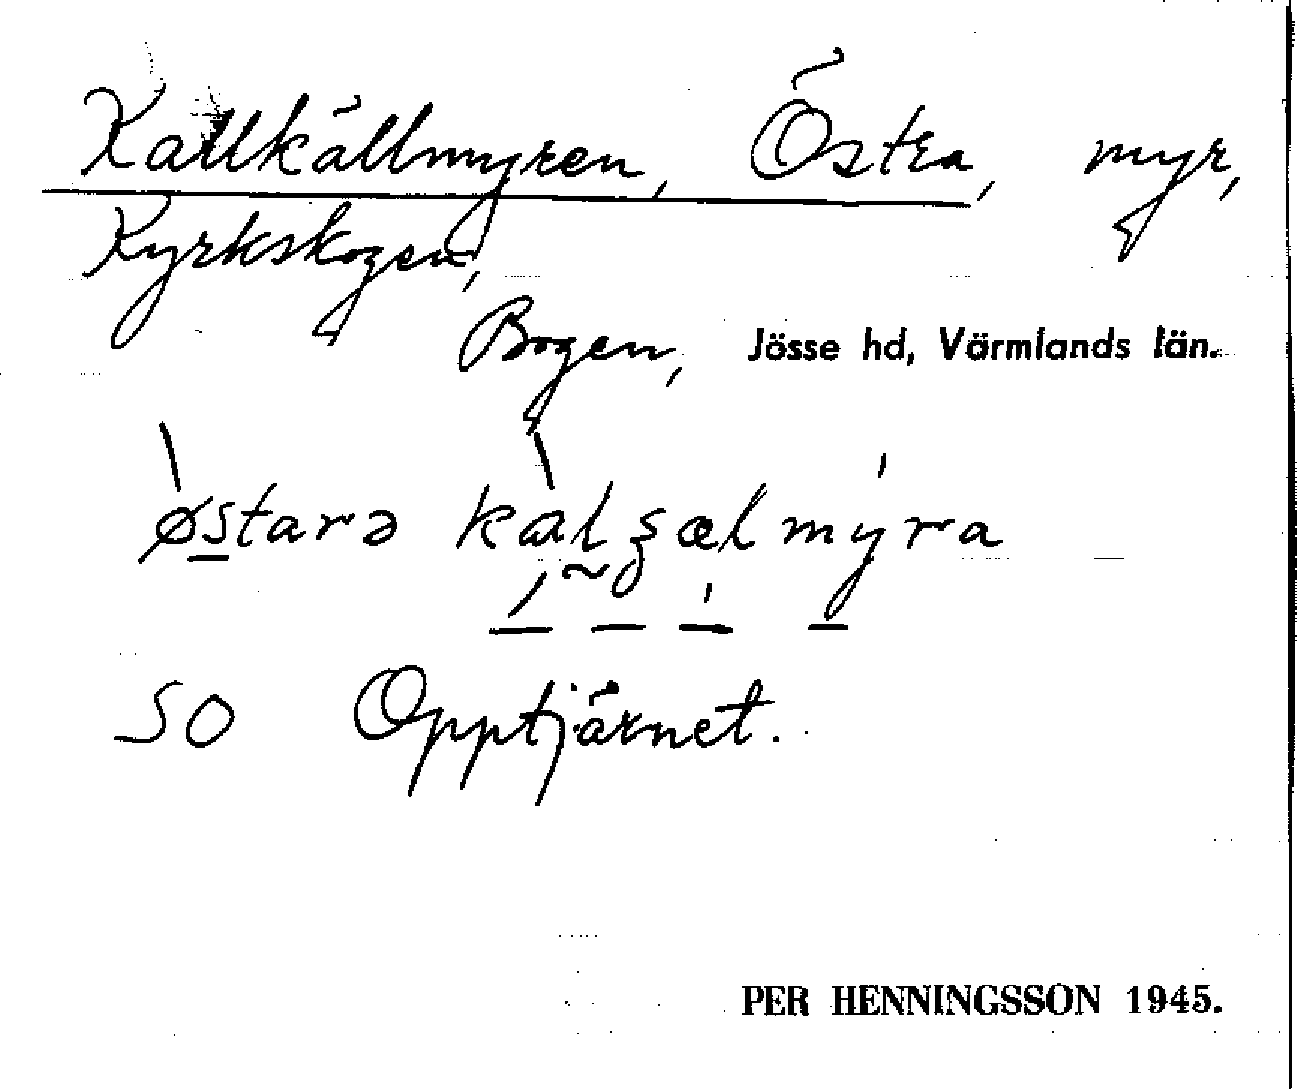 Kallkällmyren, Östra, myr,
Kyrkskogen,
Bogen, Jösse hd, Värmlands län.
østarə kalʂælmyra
SO Opptjärnet.
PER HENNINGSSON 1945.